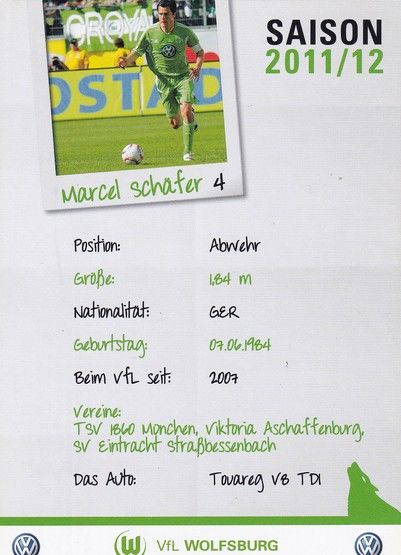 SAISON
2011/12
CROYA
OSTAD
Marcel Schäfer 4
Position: Abwehr
Größe: 1,84 m
Nationalität: GER
Geburtstag: 07.06.1984
Beim VfL seit: 2007
Vereine:
TSV 1860 München, Viktoria Aschaffenburg,
SV Eintracht Straßbessenbach
Das Auto: Touareg V8 TDI
VfL WOLFSBURG